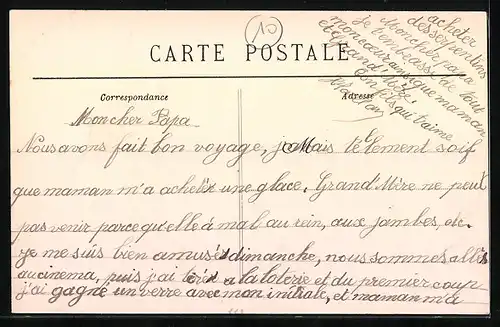 10
CARTE POSTALE
Correspondance
Adresse
Mon cher Papa
Nous avons fait bon voyage, j'avais tellement soif
que maman m'a achetér une glace. Grand'Mère ne peut
pas venir parce qu'elle à mal au rein, aux jambes, etc.
Je me suis bien amusés dimanche, nous sommes allés
au cinema, puis j'ai tiré a la loterie et du premier coup
j'ai gagné un verre avec mon initiale, et maman m'a
acheter
des serpentins
Mon cher papa
je t'embrasse de tout
mon cœur ainsi que maman
et Grand'Mère.
Ton fils qui t'aime